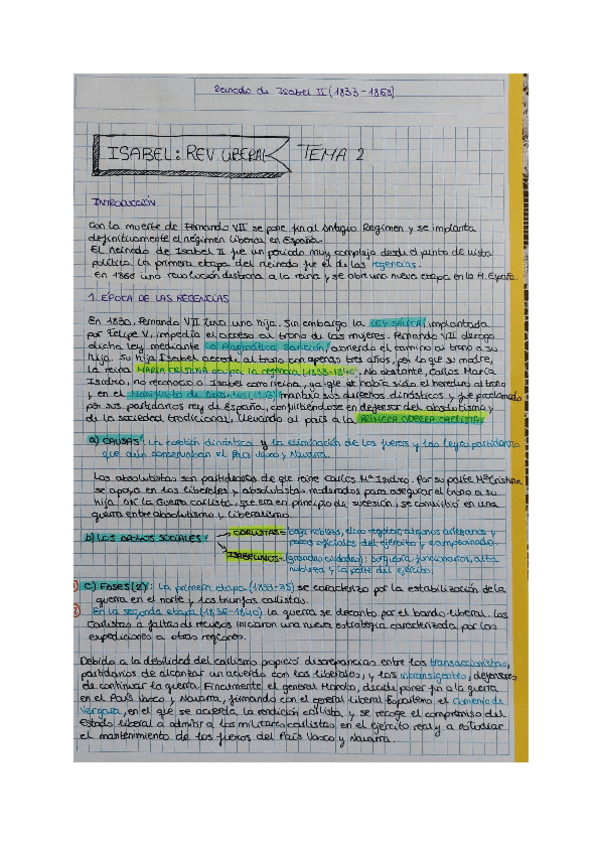 Reinado de Isabel II (1833-1868)
ISABEL: REV. LIBERAL TEMA 2
INTRODUCCIÓN
Con la muerte de Fernando VII se pone fin al Antiguo Regimen y se implanta
definitivamente el régimen liberal en España.
El reinado de Isabel II fue un periodo muy complejo desde el punto de vista
político. La primera etapa del reinado fue el de las regencias.
En 1868 una revolución destrona a la reina y se abre una nueva etapa en la H. España.
1. ÉPOCA DE LAS REGENCIAS
En 1830, Fernando VII tuvo una hija. Sin embargo la LEY SÁLICA, implantada
por Felipe V, impedía el acceso al trono de las mujeres. Fernando VII derogó
dicha ley mediante la Pragmática Sanción, abriendo el camino al trono a su
hija. Su hija Isabel accede al trono con apenas tres años, por lo que su madre,
la reina MARÍA CRISTINA la regencia (1833-1840). No obstante, Carlos María
Isidro, no reconoció a Isabel como reina, ya que él había sido el heredero al trono
y en el Manifiesto de mantuvo sus derechos dinásticos y fue proclamado
por sus partidarios rey de España, convirtiéndose en defensor del absolutismo y
de la sociedad tradicional, llevando al país a la PRIMERA GUERRA CARLISTA.
a) CAUSAS: la cuestión dinástica y la eliminación de los fueros y las leyes particulares
que aún conservaban el País Vasco y Navarra.
Los absolutistas son partidarios de que reine Carlos Mª Isidro. Por su parte Mª Cristina
se apoya en los liberales y absolutistas moderados para asegurar el trono a su
hija. La Guerra Carlista, que era en principio de sucesión, se convirtió en una
guerra entre absolutismo y liberalismo.
b) LOS APOYOS SOCIALES: CARLISTAS= baja nobleza, clero regular, algunos artesanos y
pocos oficiales del ejército y campesinado.
ISABELINOS= (grandes ciudades): burguesía, funcionarios, alta
nobleza y la parte del ejército.
c) FASES (2): La primera etapa (1833-35) se caracterizó por la estabilización de la
guerra en el norte y los triunfos carlistas.
En la segunda etapa (1836-1840) la guerra se decantó por el bando liberal. Los
Carlistas a faltas de recursos iniciaron una nueva estrategia caracterizada por las
expediciones a otras regiones.
Debido a la debilidad del carlismo propició discrepancias entre los transaccionistas,
partidarios de alcanzar un acuerdo con los liberales, y los intransigentes, defensores
de continuar la guerra. Finalmente el general Maroto, decide poner fin a la guerra
en el País Vasco y Navarra, firmando con el general liberal Espartero el Convenio de
Vergara, en el que se acuerda la rendición carlista y se recoge el compromiso del
Estado liberal a admitir a los militares carlistas en el ejército real y a estudiar
el mantenimiento de los fueros del País Vasco y Navarra.